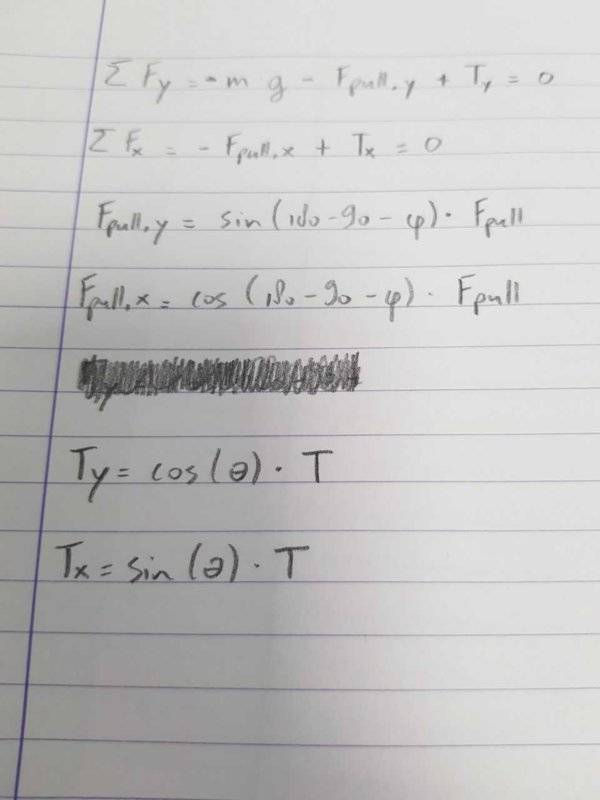 Σ Fy = -m g - Fpull,y + Ty = 0
Σ Fx = - Fpull,x + Tx = 0
Fpull,y = sin(180-90-φ) · Fpull
Fpull,x = cos (180-90-φ) · Fpull
Ty = cos(θ) · T
Tx = sin(θ) · T